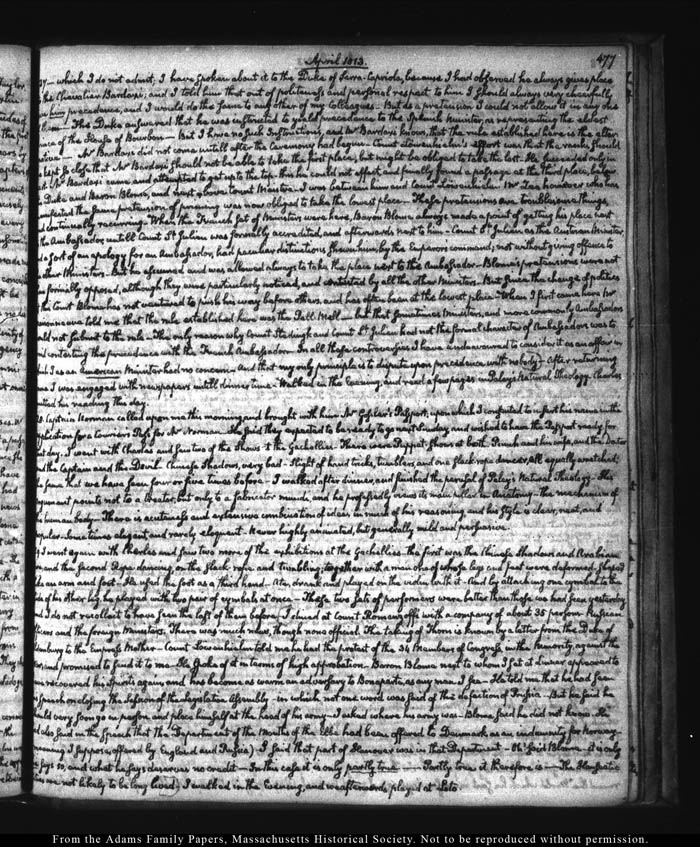 April 1813.
477
which I do not admit; I have spoken about it to the Duke of Serra-Capriola, because I had observed he always gives place
Chevalier Bardaxi; and I told him that out of politeness and personal respect to him I should always very cheerfully
him precedence, and I would do the same to any other of my Colleagues. But as a pretension I could not allow it in any one
The Duke answered that he was instructed to yield precedence to the Spanish Minister, as representing the eldest
of the House of Bourbon — But I have no such Instructions, and Mr Bardaxi knows, that the rule established here is the other
Mr Bardaxi did not come untill after the Ceremony had begun. Count Löwenhielm's effort was that the ranks should
kept so close that Mr Bardaxi should not be able to take the first place, but might be obliged to take the last. He succeeded only in
Mr Bardaxi came, and attempted to get up to the top. this he could not effect, and finally found a passage at the third place, below
Duke and Baron Blome, and next above Count Maistre. I was between him and Count Löwenhielm. Mr however who has
manifested the same pretension of pressing was now obliged to take the lowest place. These pretensions are troublesome things,
continually recurring. When the French set of Ministers were here, Baron Blome always made a point of getting his place next
the Ambassador, untill Count St Julien was formally accredited, and afterwards next to him — Count St Julien as the Austrian Minister,
sort of an apology for an Ambassador, had peculiar distinctions shewn him by the Emperor's command; not without giving offence to
other Ministers. but he assumed and was allowed always to take the place next to the Ambassador — Blome's pretensions were not
formally opposed, although they were particularly noticed, and contested by all the other Ministers. But since the change of politics
this Court Blome has not ventured to push his way before others, and has often been at the lowest place — When I first came here Mr
told me that the rule established here was the Pell Mell — but that sometimes Ministers, and more commonly Ambassadors
would not submit to the rule — The only reason why Count Stedingk and Count St Julien had not the formal character of Ambassadors was to
contesting this precedence with the French Ambassador. In all these controversies I have endeavoured to consider it as an affair in
which I as an American Minister had no concern — And that my only principle is to dispute upon precedence with nobody — After returning
I was engaged with newspapers untill dinner time. Walked in the Evening, and read a few pages in Paley's Natural Theology. Charles
his reading this day.
Captain Norman called upon me this morning and brought with him Mr Gosler's Passport; upon which I consented to insert his name in the
application for a Courier's Pass for Mr Norman. He said they expected to be ready to go next Sunday, and wished to have the Passport ready for
that day. I went with Charles and saw two of the Shows at the Gachellies. There were Puppet-shows at both. Punch and his wife, and the Doctor
and the Captain and the Devil. Chinese Shadows, very bad — Slight of hand tricks, tumblers, and one slack rope dancer, all equally wretched;
the same that we have seen four or five times before — I walked after dinner, and finished the perusal of Paley's Natural Theology — His
argument points not to a Creator, but only to a fabricator mundi, and he professedly views its main pillar in Anatomy — the mechanism of
human body — There is acuteness and extensive combination of ideas in most of his reasoning, and his style is clear, neat, and
popular. Sometimes elegant and rarely eloquent — Never highly animated, but generally mild and persuasive.
I went again with Charles and saw two more of the exhibitions at the Gachellies. the first was the Chinese Shadows and Arabian
and the second Rope dancing, on the slack-rope and tumbling; together with a man one of whose legs and feet were deformed. Shaped
an arm and foot — He used the foot as a third hand. Ate, drank and played on the violin with it — And by attaching one cymbal to the
of his other leg, he played with two pair of cymbals at once — These two sets of performers were better than those we had seen yesterday
I do not recollect to have seen the last of them before. I dined at Count Romanzoff's with a company of about 35 persons Russian
Officers and the foreign Ministers. There was much news, though none official. The taking of Thorn is known by a letter from the Duke of
Oldenburg to the Empress Mother — Count Löwenhielm told me he had the protest of the 34 Members of Congress in the Minority, against the
war, and promised to send it to me. He spoke of it in terms of high approbation — Baron Blome next to whom I sat at dinner appeared to
have recovered his spirits again, and has become as warm an adversary to Bonaparte, as any man I see — He told me that he had seen
Speech on closing the Session of the Legislative Assembly — in which not one word was said of the defection of Prussia. But he said he
would very soon go in person and place himself at the head of his army — I asked where his army was — Blome said he did not know. He
also said in the Speech that the Department of the Mouths of the Elbe had been offered to Denmark as an indemnity for Norway —
meaning I suppose, offered by England and Russia) I said that part of Hanover was in that Department — Oh! said Blome — it is only
says so, and what he says deserves no credit — In this case it is only partly true — Partly true it therefore is — The Hanseatic
are not likely to be long lived. I walked in the Evening, and we afterwards played at Loto.
From the Adams Family Papers, Massachusetts Historical Society. Not to be reproduced without permission.